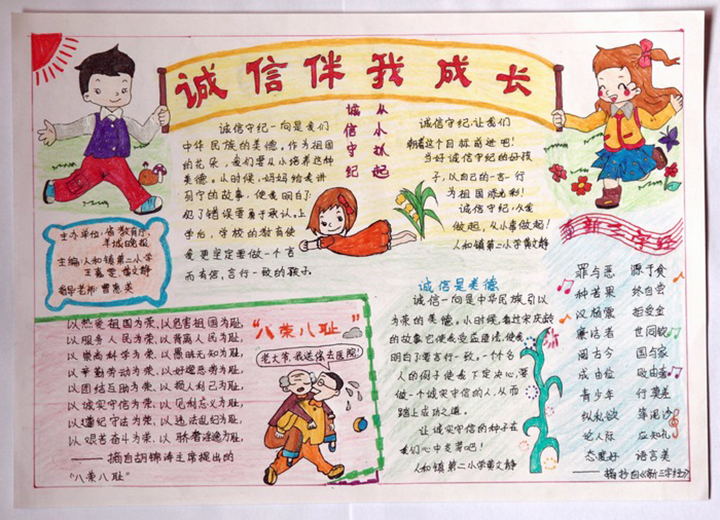 诚信伴我成长
从小扒起
诚信守纪
诚信守纪一向是我们
中华民族的美德。作为祖国
的花朵，我们要从小培养这种
美德。从时候，妈妈给我讲
列宁的故事，使我明白了：
犯了错误要勇于承认。上
学后，学校的教育使
我更坚定要做一个言
而有信，言行一致的孩子。
诚信守纪，让我们
朝着这个目标前进吧！
当好诚信守纪的好孩
子，以自己的一言一行
为祖国添光彩！
诚信守纪，从我
做起，从小事做起！
人和镇第二小学黄文静
主办单位：省教育厅、
羊城晚报
主编：人和镇第二小学
指导老师：曹惠美
以热爱祖国为荣，以危害祖国为耻，
以服务人民为荣，以背离人民为耻，
以崇尚科学为荣，以愚昧无知为耻，
以辛勤劳动为荣，以好逸恶劳为耻，
以团结互助为荣，以损人利己为耻，
以诚实守信为荣，以见利忘义为耻，
以遵纪守法为荣，以违法乱纪为耻，
以艰苦奋斗为荣，以骄奢淫逸为耻。
——摘自胡锦涛主席提出的
“八荣八耻”
“八荣八耻”
老大爷，我送你去医院！
诚信是美德
诚信一向是中华民族引以
为荣的美德。小时候，看过宋庆龄
的故事它使我受益匪浅，使我
明白了要言行一致。一个个名
人的例子使我下定决心，要
做一个诚实守信的人，从而
踏上成功之道。
让诚实守信的种子在
我们心中发芽吧！
人和镇第二小学黄文静
新三字经
罪与恶 源于贪
种苦果 终自尝
世同钦
阅古今 国与家
成由俭 败由奢
青少年 行莫差
纵私欲 等泥沙
论人际 应知礼
态度好 语言美
——摘抄自《新三字经》